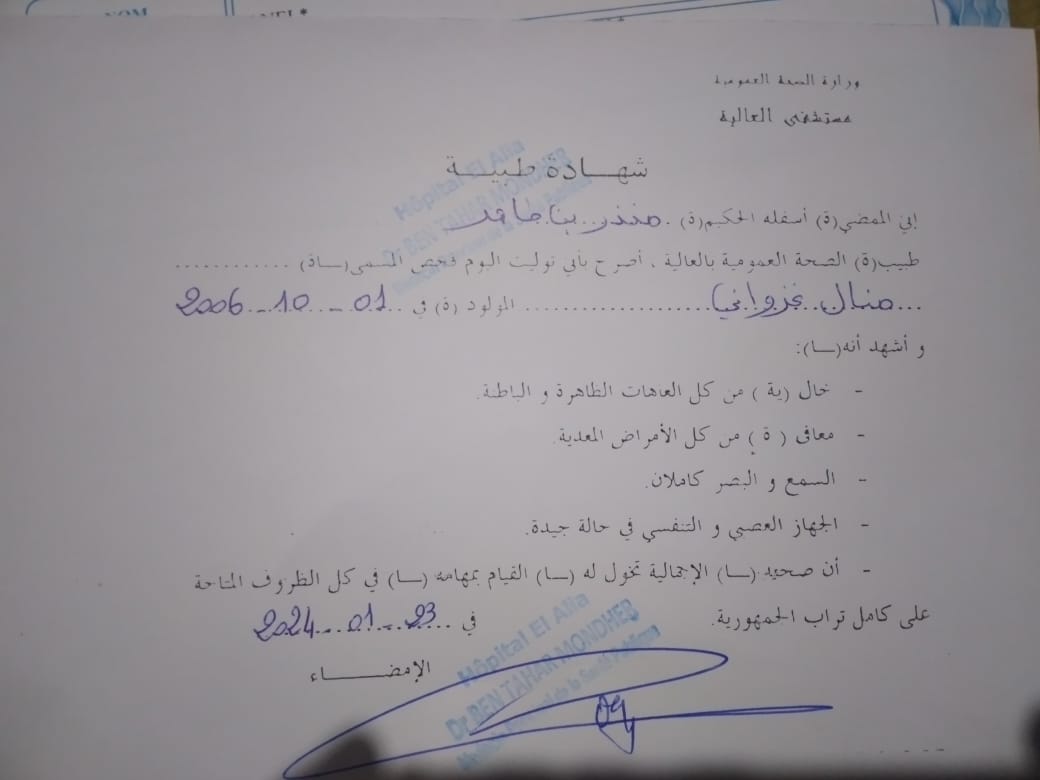 NOM
وزارة الصحة العمومية
مستشفى العالية
شهـــادة طبيـــة
Hôpital El Alia
Dr BEN TAHAR MONDHER
إني الممضي(ة) أسفله الحكيم(ة) منذر بن طاهر
طبيب(ة) الصحة العمومية بالعالية ، أصرح بأني توليت اليوم فحص المسمى(ـــاة) ............
منال غزواني ........................ المولود (ة) في 01 - 10 - 2006
و أشهد أنه(ـــا):
- خال (ية ) من كل العاهات الظاهرة و الباطنة.
- معافى ( ة ) من كل الأمراض المعدية.
- السمع و البصر كاملان.
- الجهاز العصبي و التنفسي في حالة جيدة.
- أن صحيد (ـــا) الإجمالية تخول له (ـــا) القيام بمهامه (ـــا) في كل الظروف المتاحة
على كامل تراب الجمهورية.
في 23 - 01 - 2024
الإمضـــــاء
Hôpital El Alia
Dr BEN TAHAR MONDHER